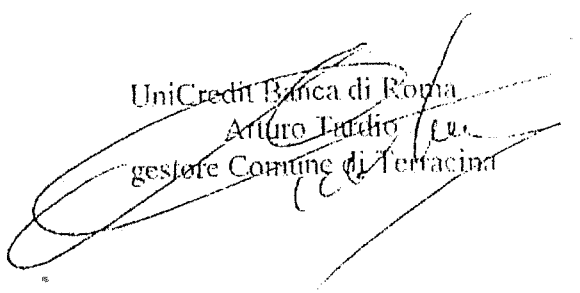 UniCredit Banca di Roma
Arturo Tardio
gestore Comune di Terracina